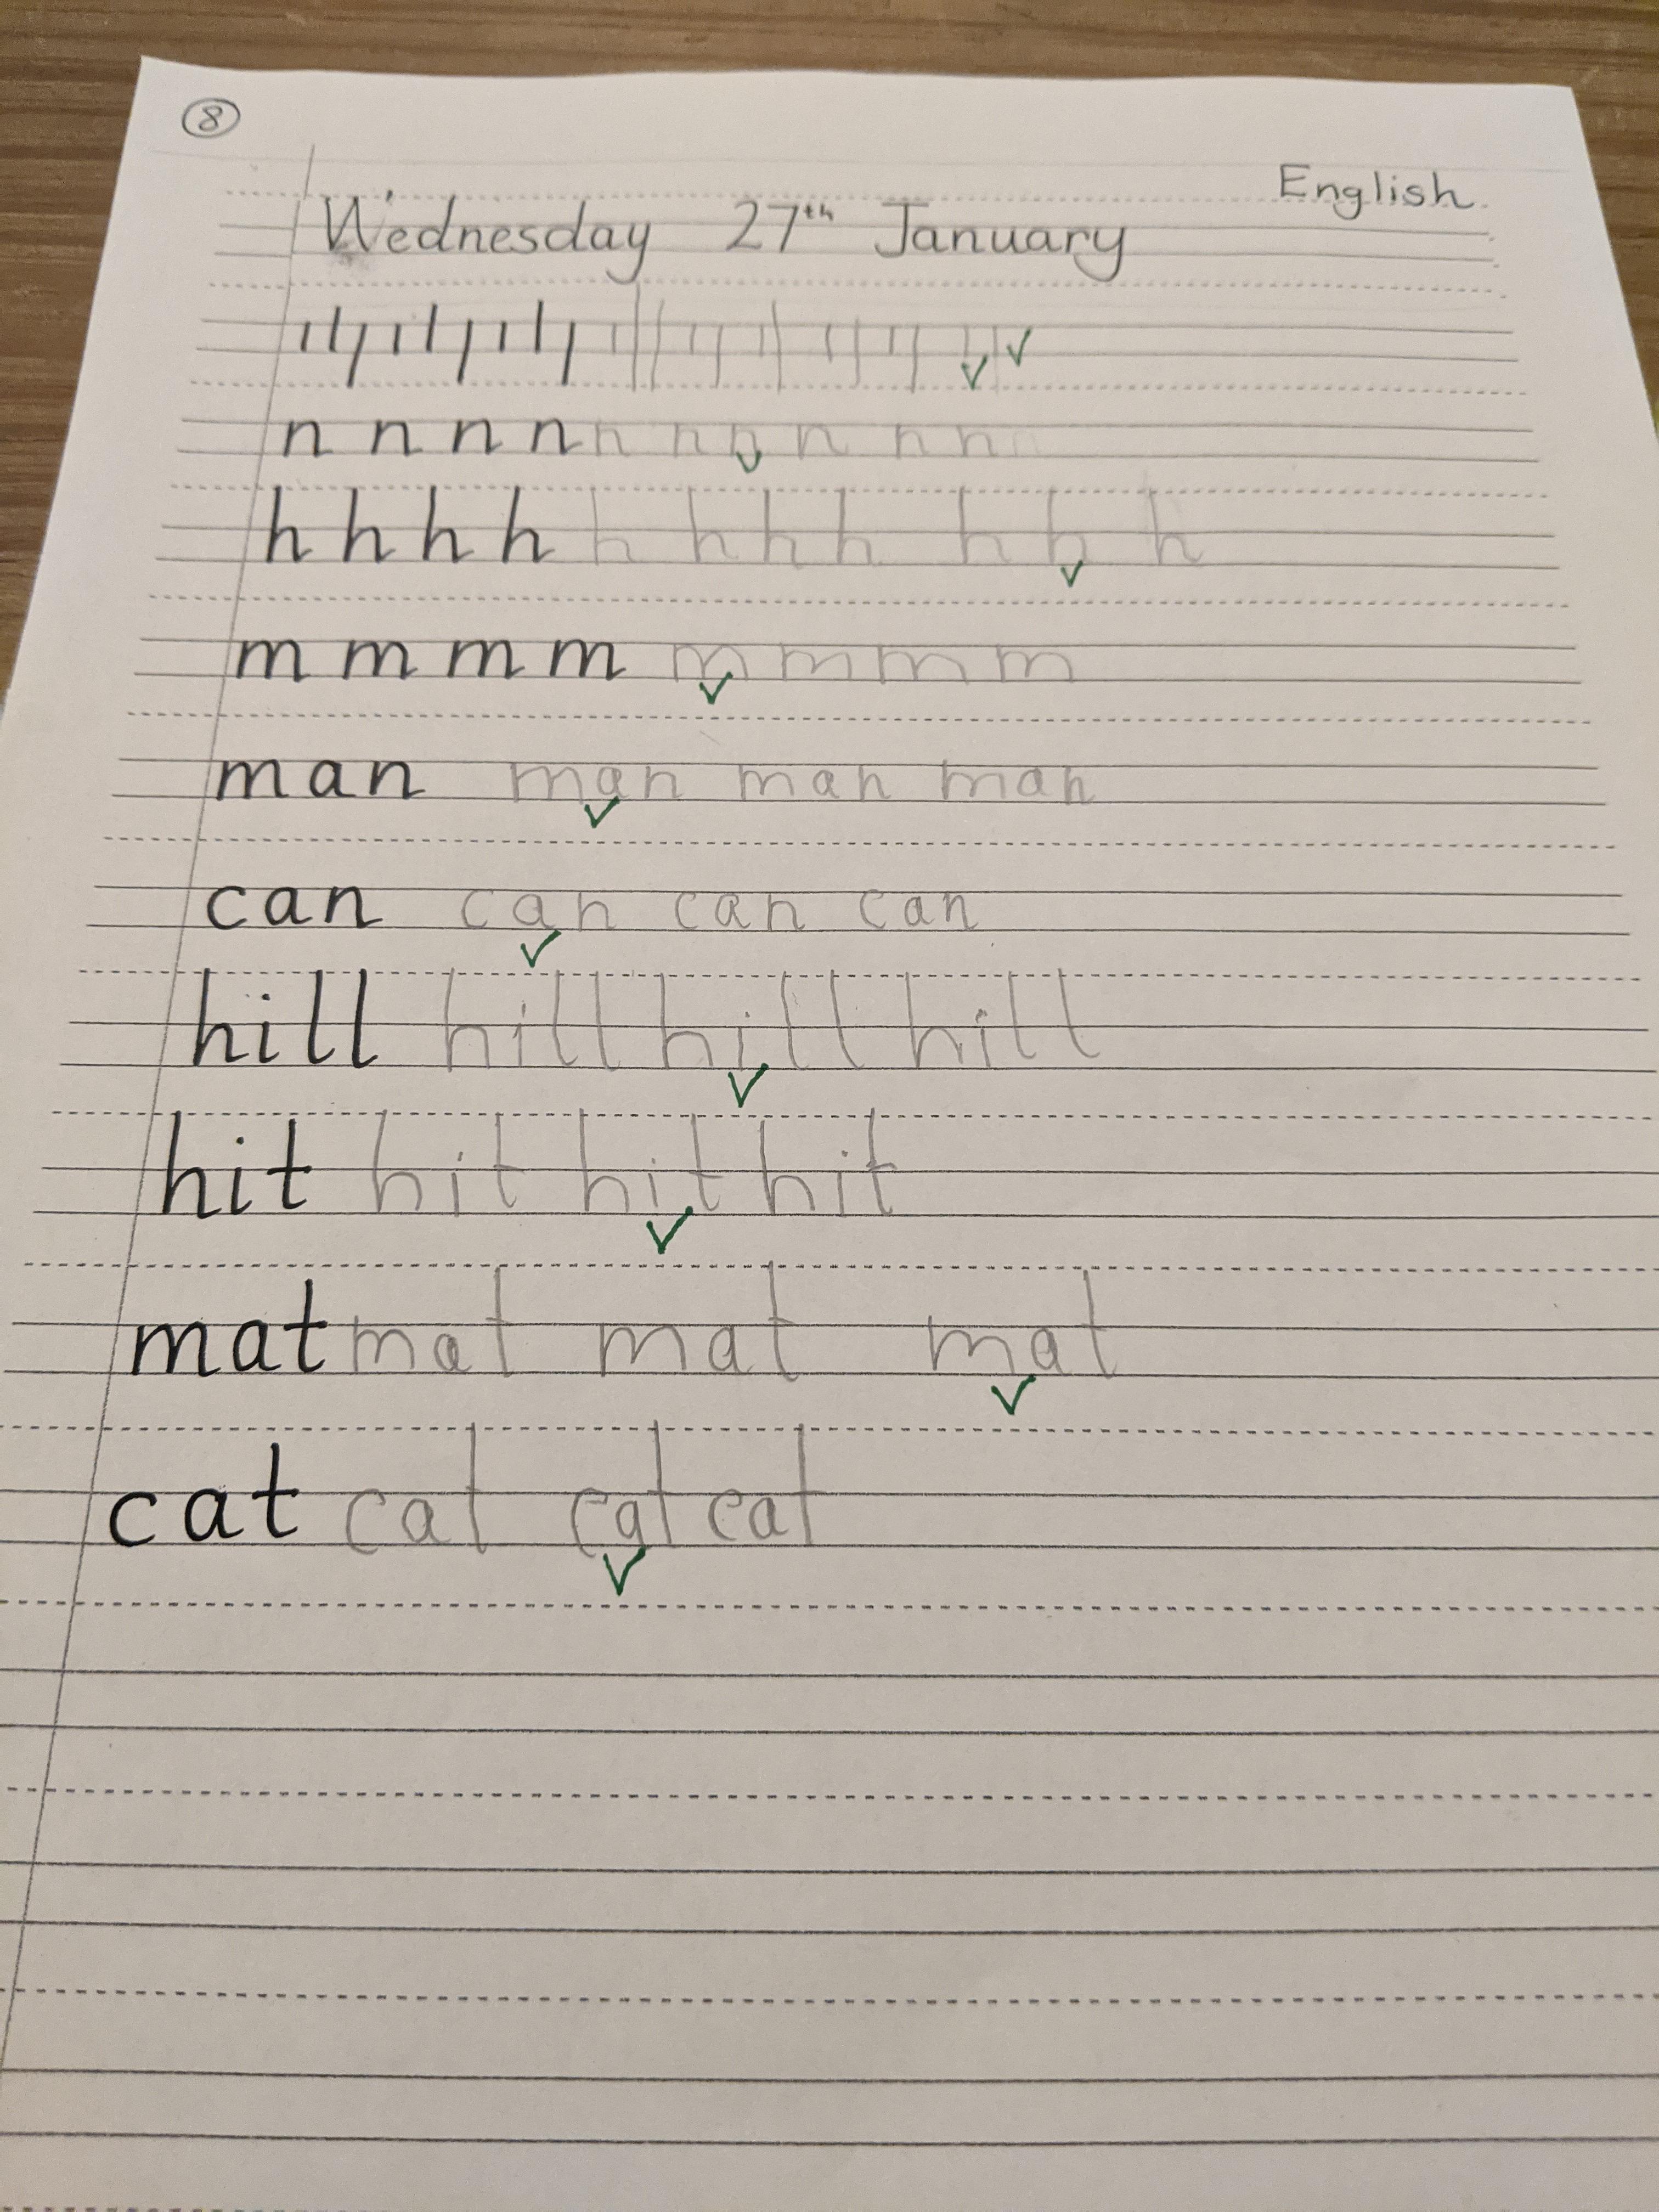 8
English
Wednesday 27th January
n n n n n n n n n n
h h h h h h h h h h h
m m m m m m m m
man man man man
can can can can
hill hill hill hill
hit hit hit hit
mat mat mat mat
cat cat cat cat